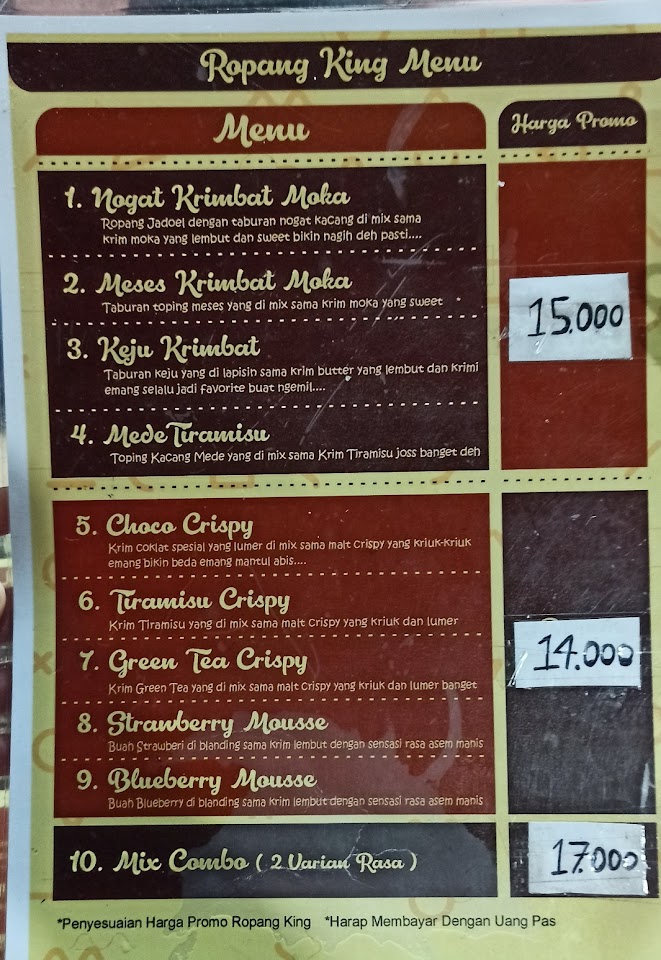 Ropang King Menu
Menu
Harga Promo
1. Nogat Krimbat Moka
Ropang Jadoel dengan taburan nogat kacang di mix sama
krim moka yang lembut dan sweet bikin nagih deh pasti....
2. Meses Krimbat Moka
Taburan toping meses yang di mix sama krim moka yang sweet
3. Keju Krimbat
Taburan keju yang di lapisin sama krim butter yang lembut dan krimi
emang selalu jadi favorite buat ngemil....
4. Mede Tiramisu
Toping Kacang Mede yang di mix sama Krim Tiramisu joss banget deh
15.000
5. Choco Crispy
Krim coklat spesial yang lumer di mix sama malt crispy yang kriuk-kriuk
emang bikin beda emang mantul abis....
6. Tiramisu Crispy
Krim Tiramisu yang di mix sama malt crispy yang kriuk dan lumer
7. Green Tea Crispy
Krim Green Tea yang di mix sama malt crispy yang kriuk dan lumer banget
8. Strawberry Mousse
Buah Strawberi di blanding sama krim lembut dengan sensasi rasa asem manis
9. Blueberry Mousse
Buah Blueberry di blanding sama krim lembut dengan sensasi rasa asem manis
14.000
10. Mix Combo ( 2 Varian Rasa )
17.000
*Penyesuaian Harga Promo Ropang King *Harap Membayar Dengan Uang Pas